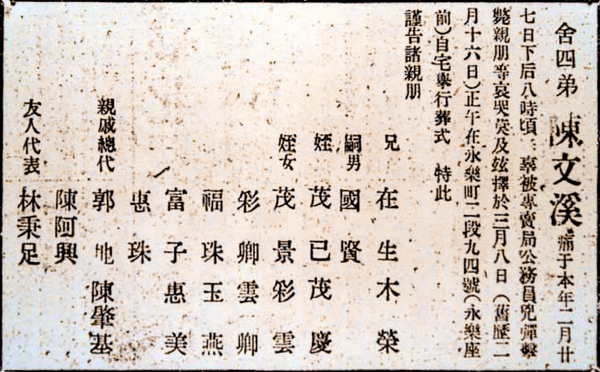 舍四弟 陳文溪 痛于本年二月廿
七日下后八時頃、辜被專賣局公務員兇彈擊
斃親朋等哀哭及玆擇於三月八日(舊歷二
月十六日)正午在永樂町二段九四號(永樂座
前)自宅舉行葬式 特此
謹告諸親朋
兄 在生 木榮
嗣男 國賢
姪 茂已 茂慶
姪女 茂景 彩雲
彩卿 雲卿
福珠 玉燕
富子 惠美
惠珠
親戚總代 郭地 陳肇基
陳阿興
友人代表 林秉足